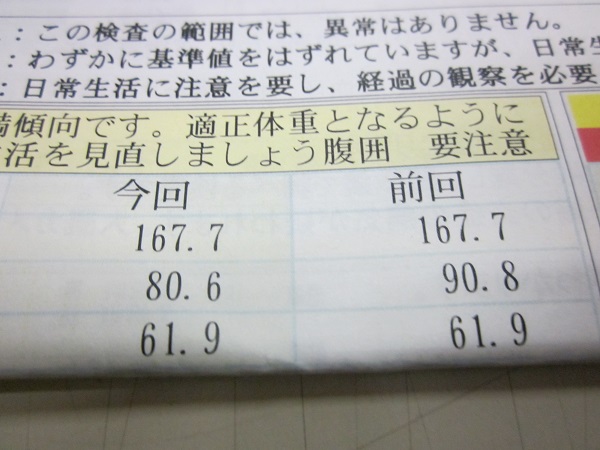 ：この検査の範囲では、異常はありません。
：わずかに基準値をはずれていますが、日常生
：日常生活に注意を要し、経過の観察を必要
満傾向です。適正体重となるように
活を見直しましょう腹囲　要注意
今回　前回
167.7　167.7
80.6　90.8
61.9　61.9